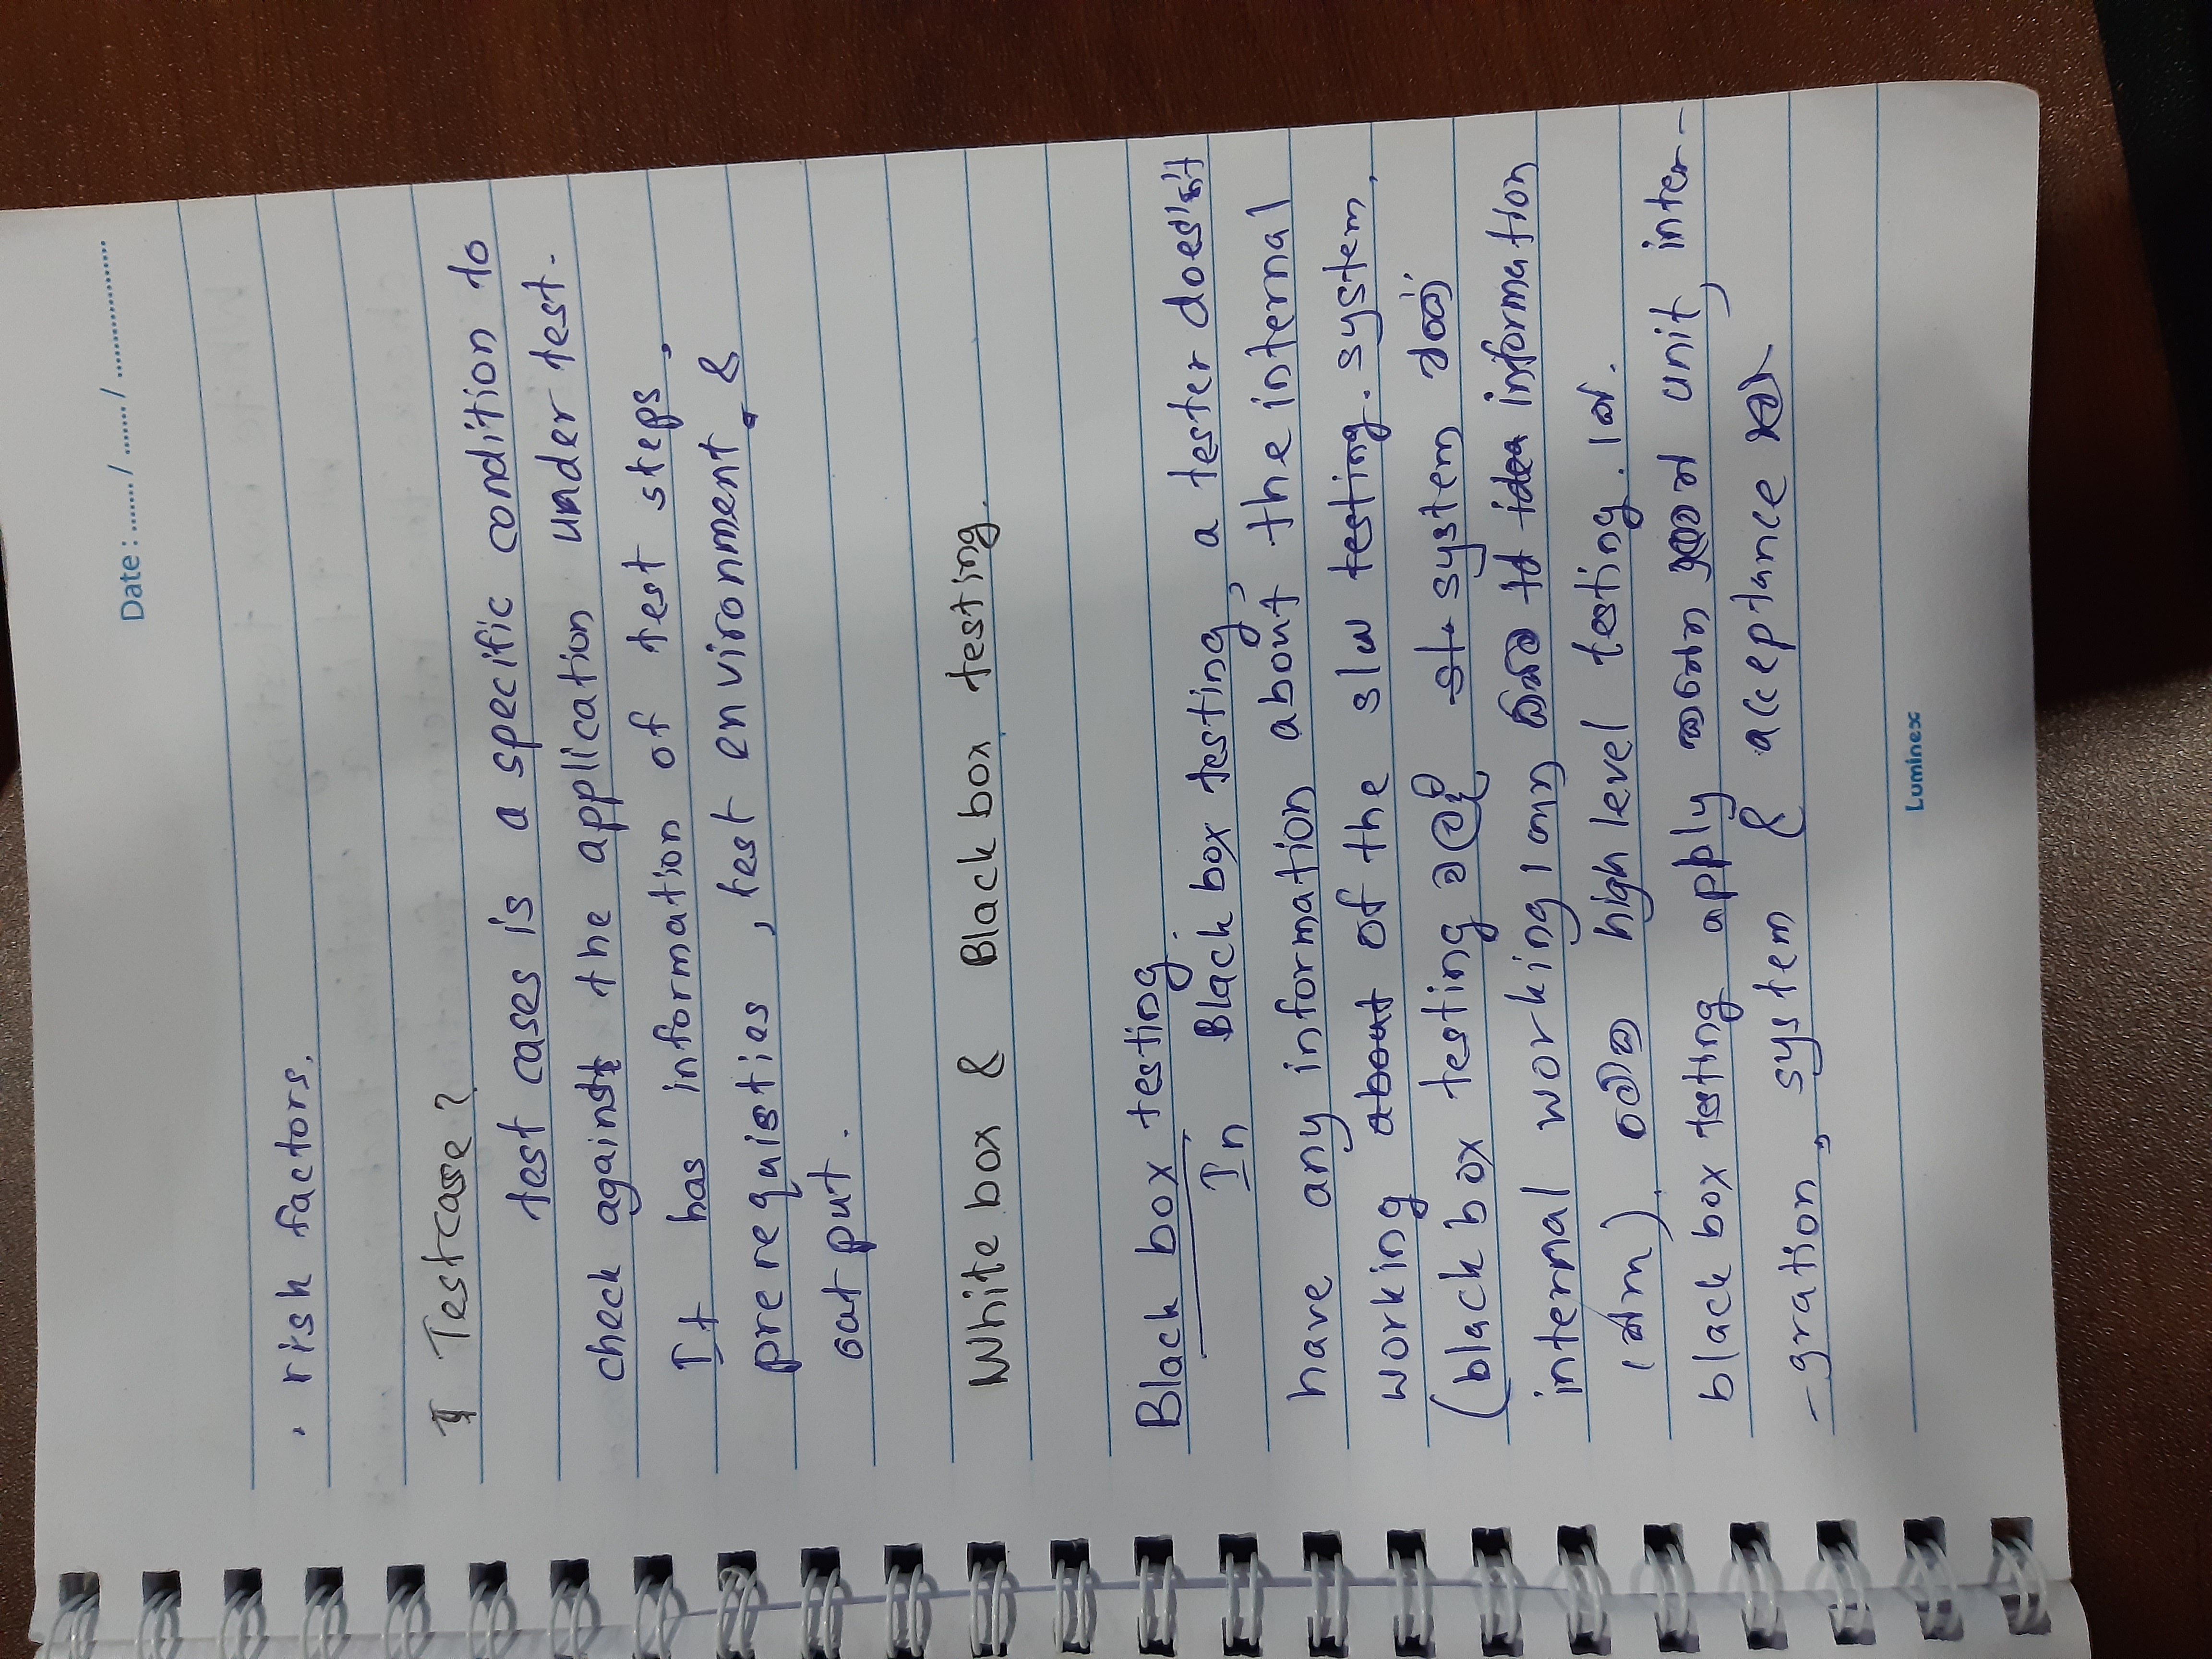 Date : ....... / ....... / ...................
. risk factors.
Testcase?
test cases is a specific condition to
check against the application under test.
It has information of test steps,
prerequisties, test environment, &
output.
White box & Black box testing.
Black box testing.
In Black box testing, a tester does'nt
have any information about the internal
working about of the s/w testing. system,
(black box testing වලදි system එකේ
internal working ගැන කිසිම idea information
නෑ). මේක high level testing.
black box testing apply කරන්න පුළුවන් unit, inter-
-gration, system & acceptance
Luminex